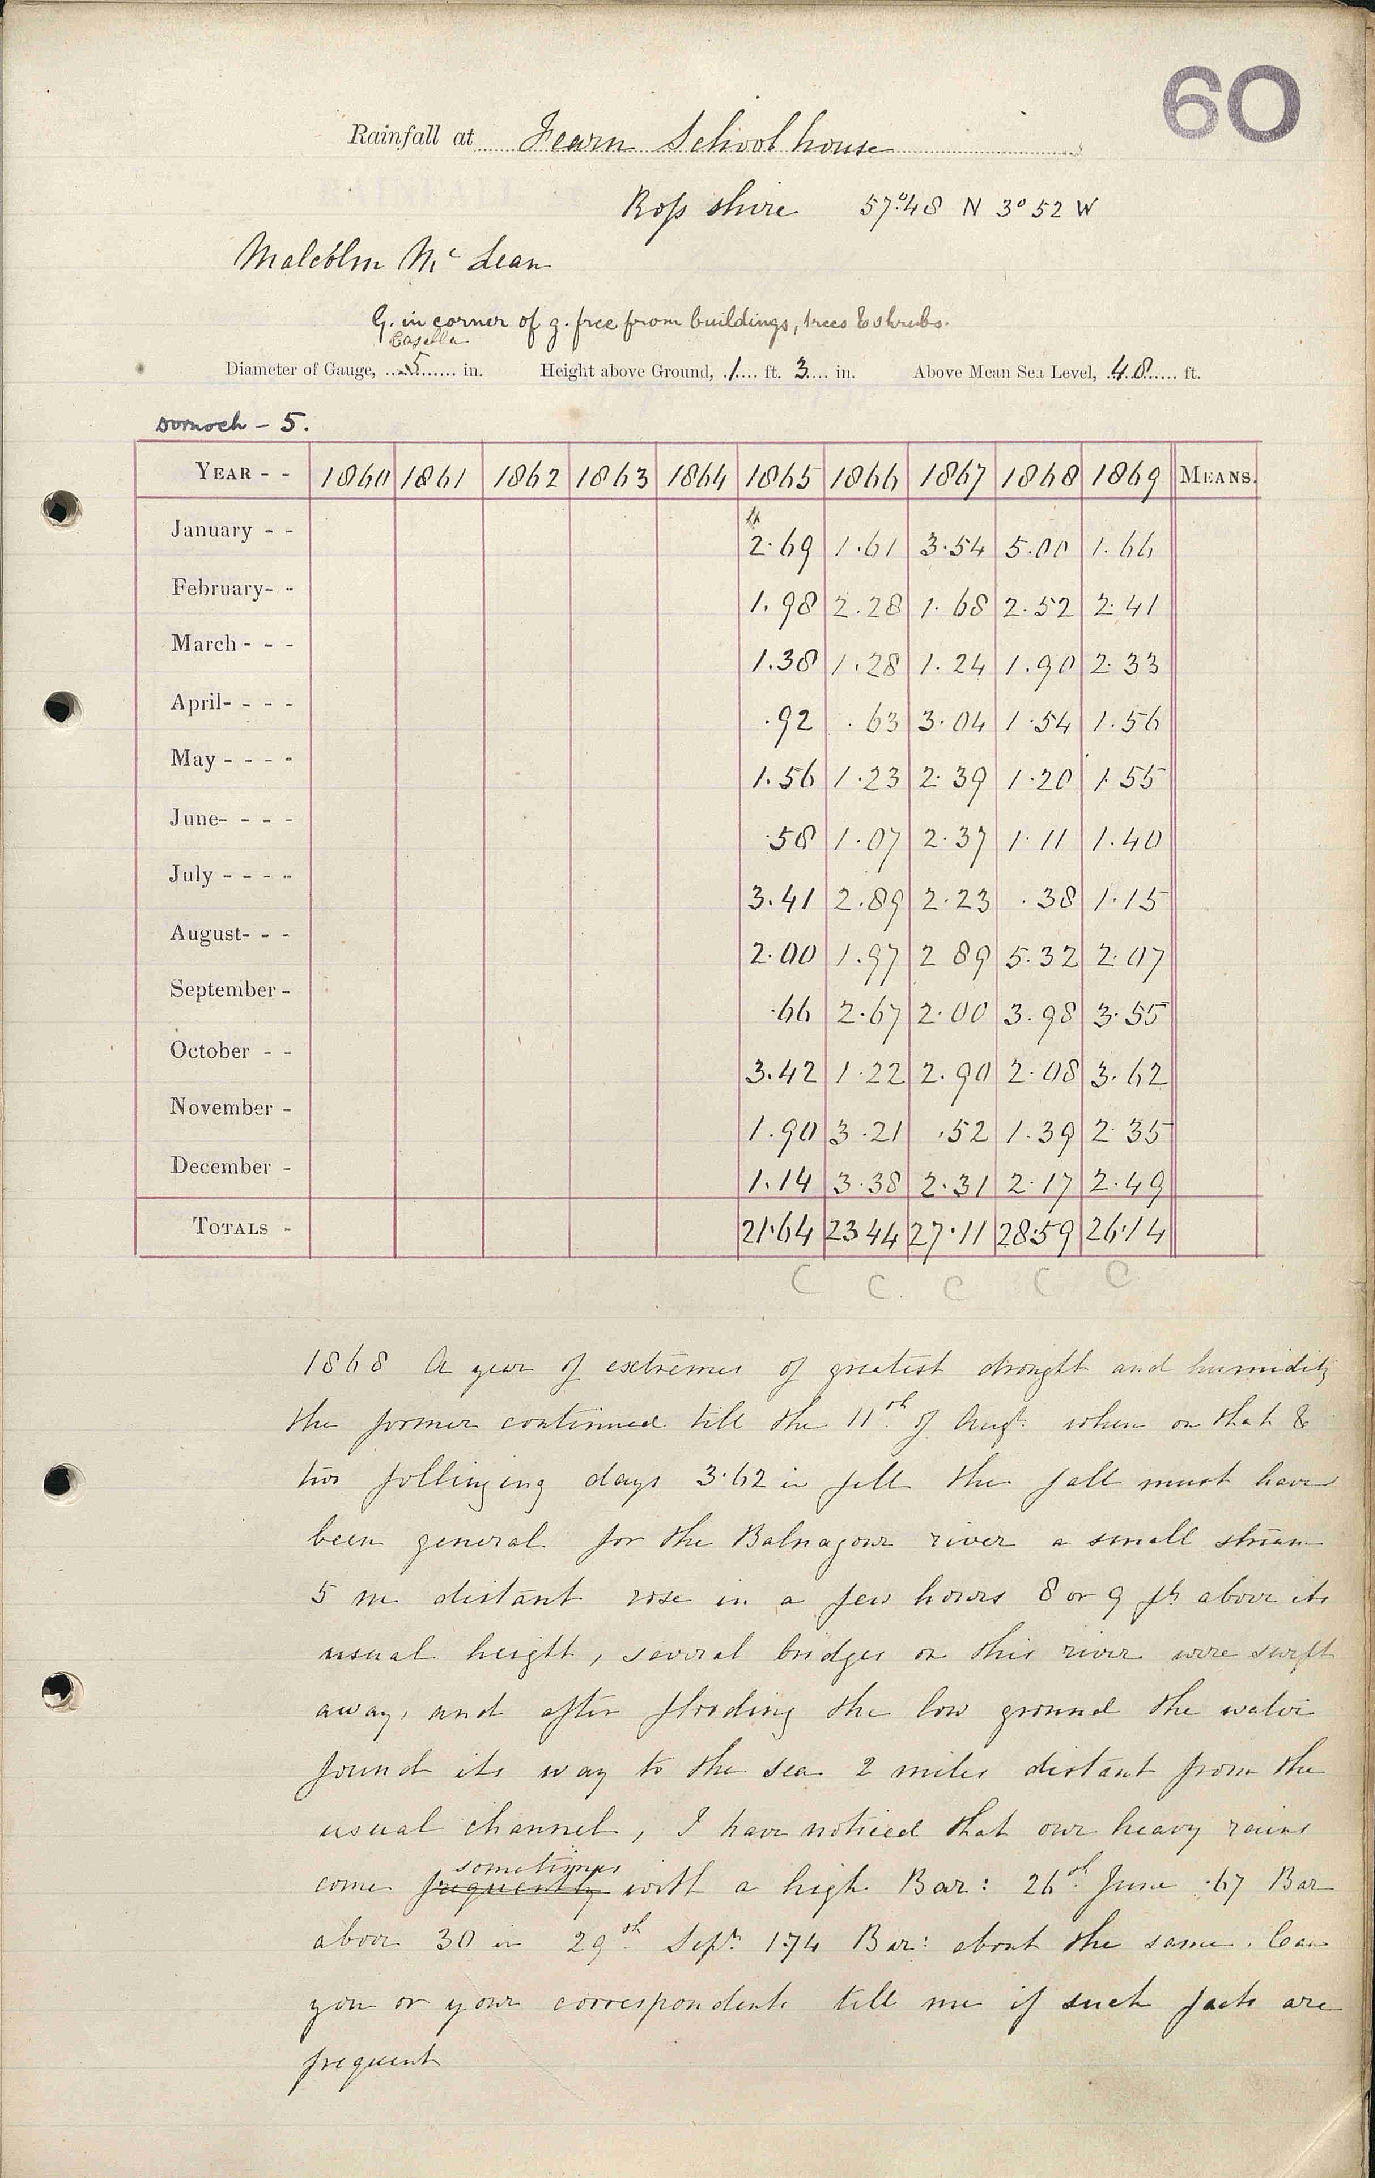 60
Rainfall at Fearn School house
Ross shire 57°.48 N 3° 52 W
Malcolm Mc Lean
G. in corner of g. free from buildings, trees & shrubs.
Casella
Diameter of Gauge, 5 in. Height above Ground, 1 ft. 3 in. Above Mean Sea Level, 48 ft.
Dornoch - 5.
YEAR - - 1860 1861 1862 1863 1864 1865 1866 1867 1868 1869 MEANS.
January - - 2.69 1.61 3.54 5.00 1.66
February- - 1.98 2.28 1.68 2.52 2.41
March - - - 1.38 1.28 1.24 1.90 2.33
April- - - - .92 .63 3.04 1.54 1.56
May - - - - 1.56 1.23 2.39 1.20 1.55
June- - - - .58 1.07 2.37 1.11 1.40
July - - - - 3.41 2.89 2.23 .38 1.15
August- - - 2.00 1.97 2 89 5.32 2.07
September - .66 2.67 2.00 3.98 3.55
October - - 3.42 1.22 2.90 2.08 3.62
November - 1.90 3.21 .52 1.39 2.35
December - 1.14 3.38 2.31 2.17 2.49
TOTALS - 21.64 23 44 27.11 28.59 26.14
C C. C C C
1868 A year of extremes of greatest drought and humidity
the former continued till the 11th of Augt. when on that &
two following days 3.62 in fell the fall must have
been general for the Balnagown river a small stream
5 m distant rose in a few hours 8 or 9 ft above its
usual height, several bridges on this river were swept
away, and after flooding the low ground the water
found its way to the sea 2 miles distant from the
usual channel, I have noticed that our heavy rains
sometimes
come frequently with a high Bar: 26th June .67 Bar
above 30 in 29th Sept. 1.74 Bar: about the same. Can
you or your correspondents tell me if such facts are
frequent